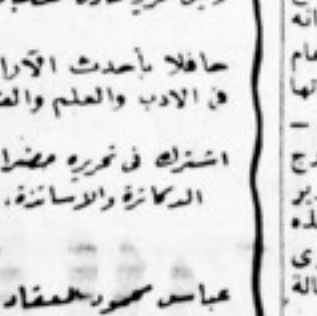 حافلا بأحدث الآرا
فى الادب والعلم والف
اشترك فى تحريره حضرا
الدكاترة والاساتذة .
عباس محمود العقاد
انه
هام
لها
رج
ير
ذه
رى
الة